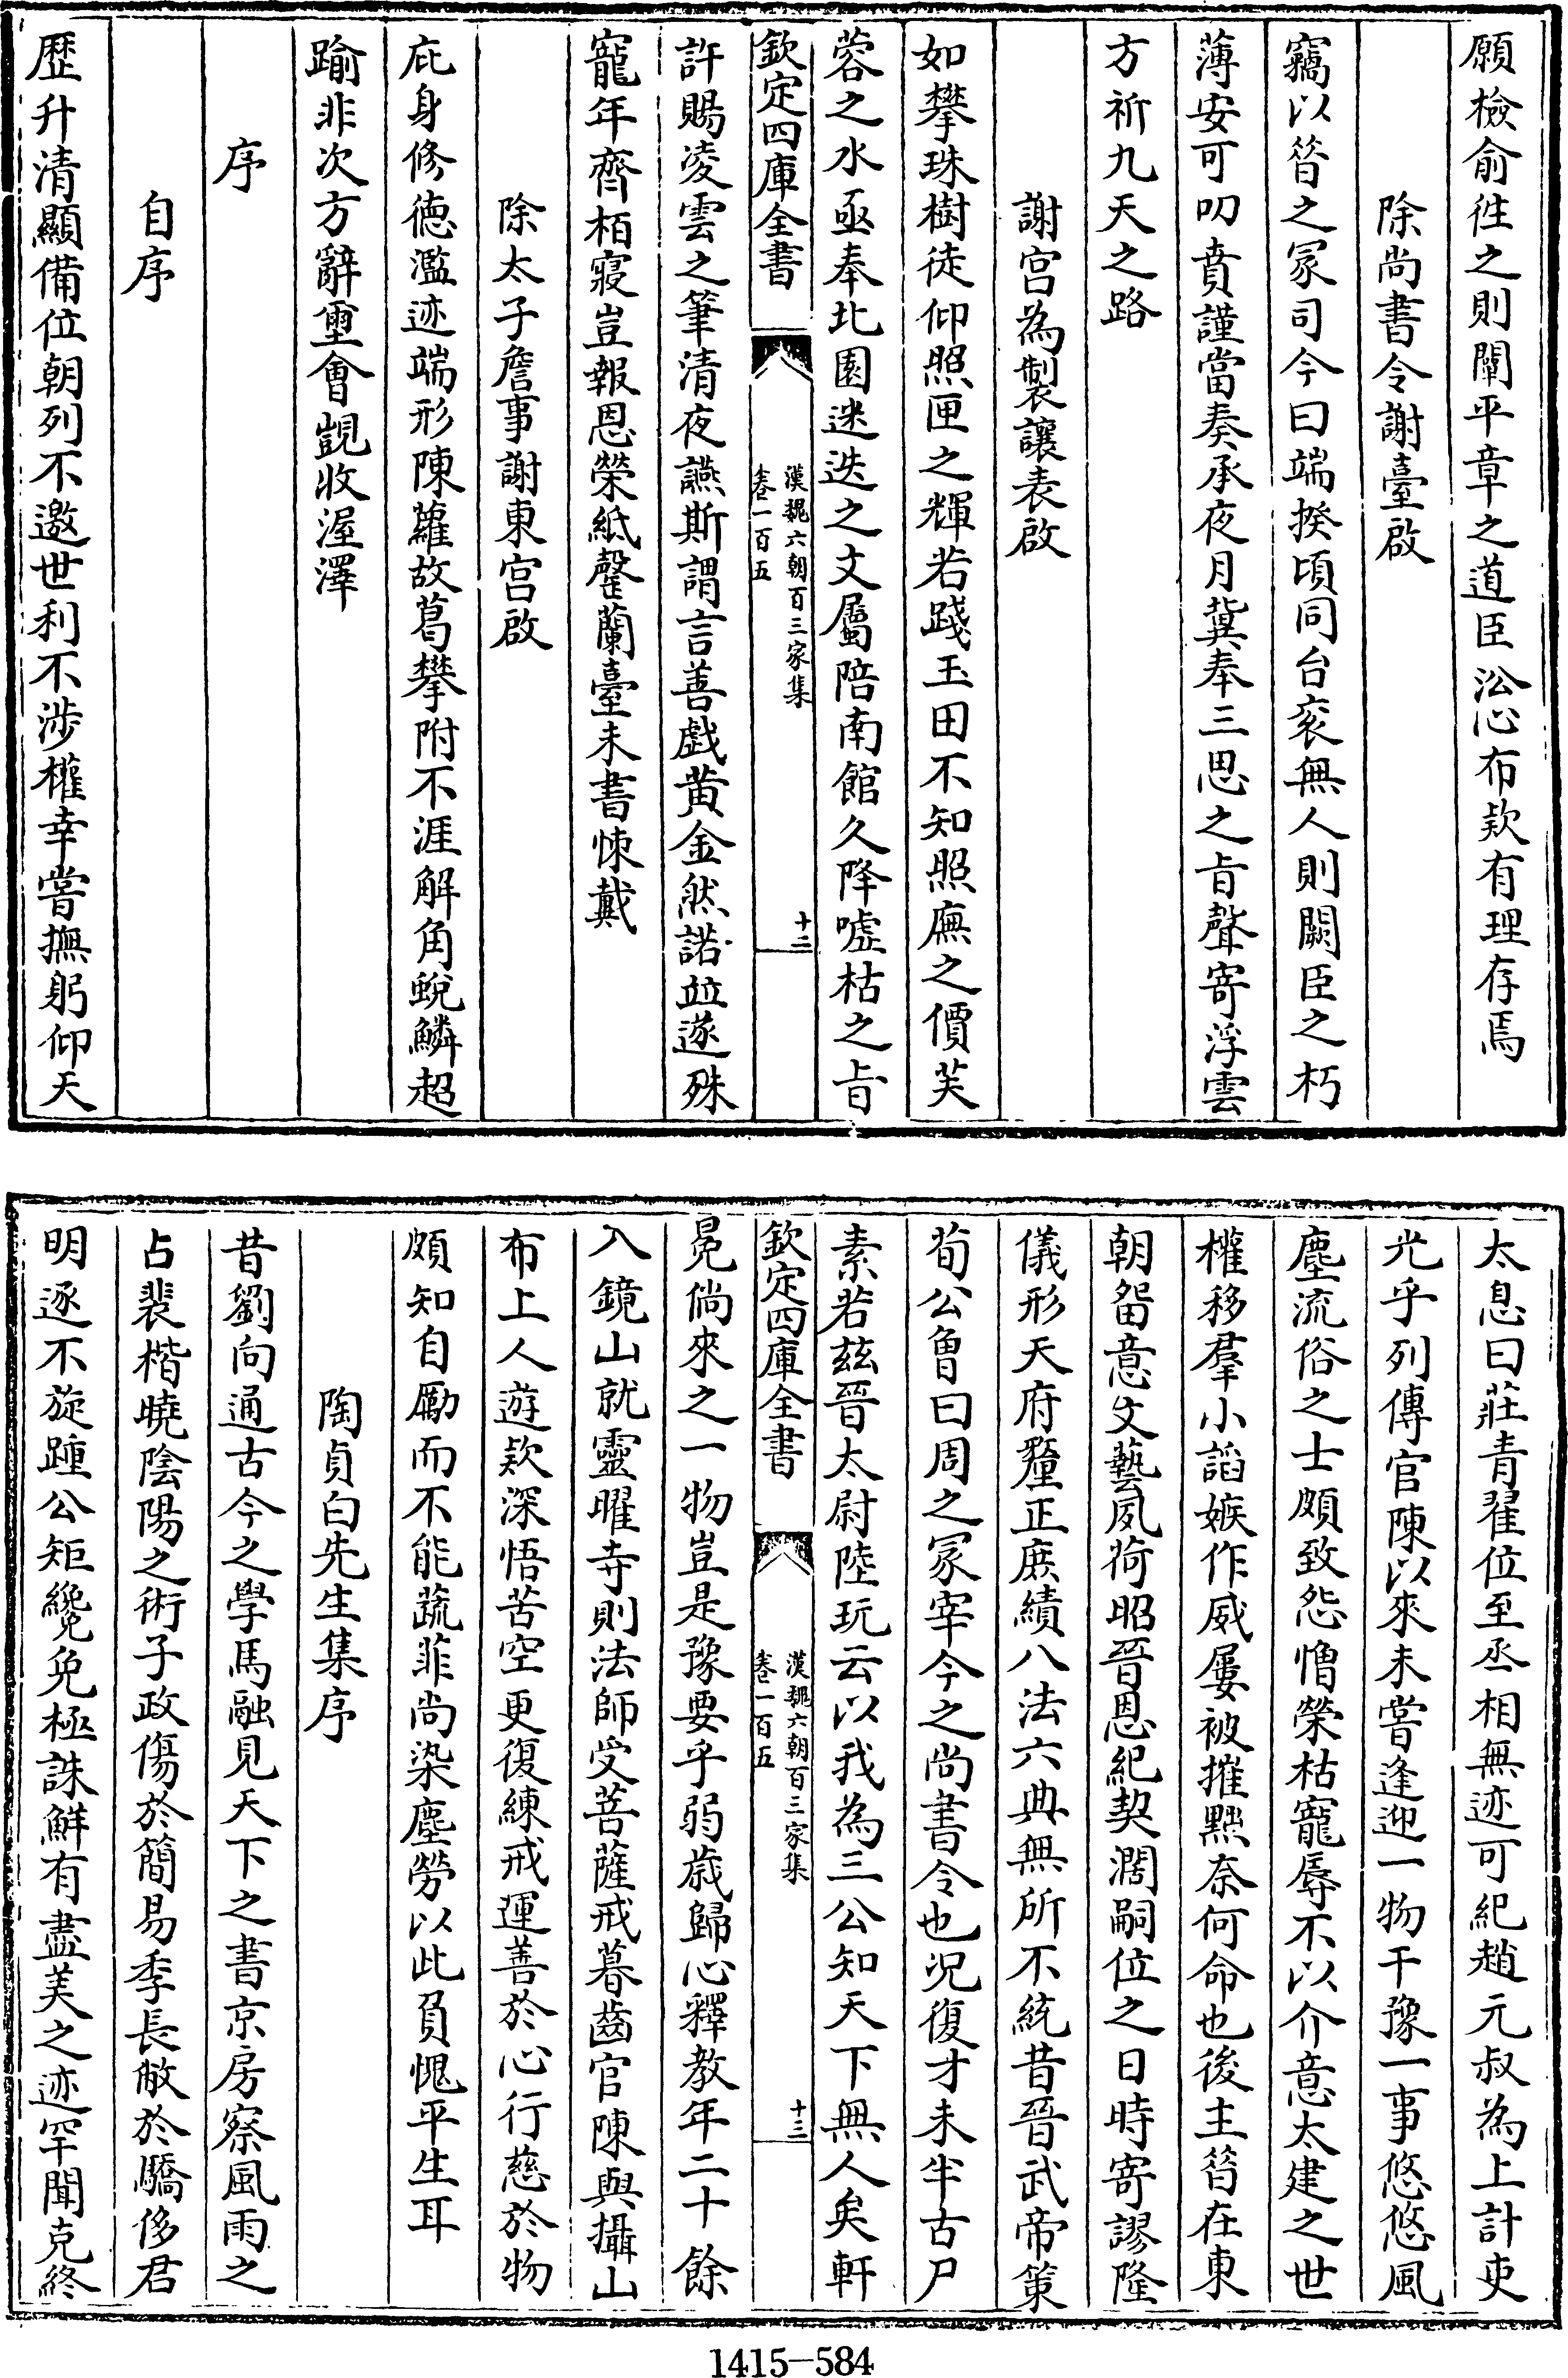 願檢俞徃之則闡平章之道臣沿心布欵有理存焉
除尚書令謝臺啟
竊以䇿之冡司今曰端揆頃同台衮無人則闕臣之朽
薄安可叨賁謹當奏承夜月冀奉三思之㫖聲寄浮雲
方祈九天之路
謝宫為製讓表啟
如攀珠樹徒仰照匣之輝若踐玉田不知照廡之價芙
蓉之水亟奉北園迷迭之文屬陪南館久降嘘枯之㫖
欽定四庫全書
漢魏六朝百三家集
卷一百五
十二
許賜凌雲之筆清夜讌斯謂言善戯黄金然諾並遂殊
寵年齊栢寢豈報恩榮紙罄蘭臺未書悚戴
除太子詹事謝東宫啟
庇身修徳濫迹端形陳蘿故葛攀附不涯解角蛻鱗超
踰非次方辭壐會覬收渥澤
序
自序
歴升清顯備位朝列不邀世利不涉權幸嘗撫躬仰天
太息曰莊青翟位至丞相無迹可紀趙元叔為上計吏
光乎列傳官陳以來未嘗逢迎一物干豫一事悠悠風
塵流俗之士頗致怨憎榮枯寵辱不以介意太建之世
權移羣小謟嫉作威屢被摧黜奈何命也後主昔在東
朝留意文藝夙荷昭晉恩紀契濶嗣位之日時寄謬隆
儀形天府釐正庶績八法六典無所不統昔晉武帝策
荀公曽曰周之冡宰今之尚書令也况復才未半古尸
素若兹晉太尉陸玩云以我為三公知天下無人矣軒
欽定四庫全書
漢魏六朝百三家集
卷一百五
十三
冕倘來之一物豈是豫要乎弱嵗歸心釋教年二十餘
入鏡山就靈曜寺則法師受菩薩戒暮齒官陳與攝山
布上人遊欵深悟苦空更復練戒運善於心行慈於物
頗知自勵而不能蔬菲尚染塵勞以此負愧平生耳
陶貞白先生集序
昔劉向通古今之學馬融見天下之書京房察風雨之
占裴楷曉陰陽之術子政傷於簡易季長敝於驕侈君
明遂不旋踵公矩纔免極誅鮮有盡美之迹罕聞克終
1415-584